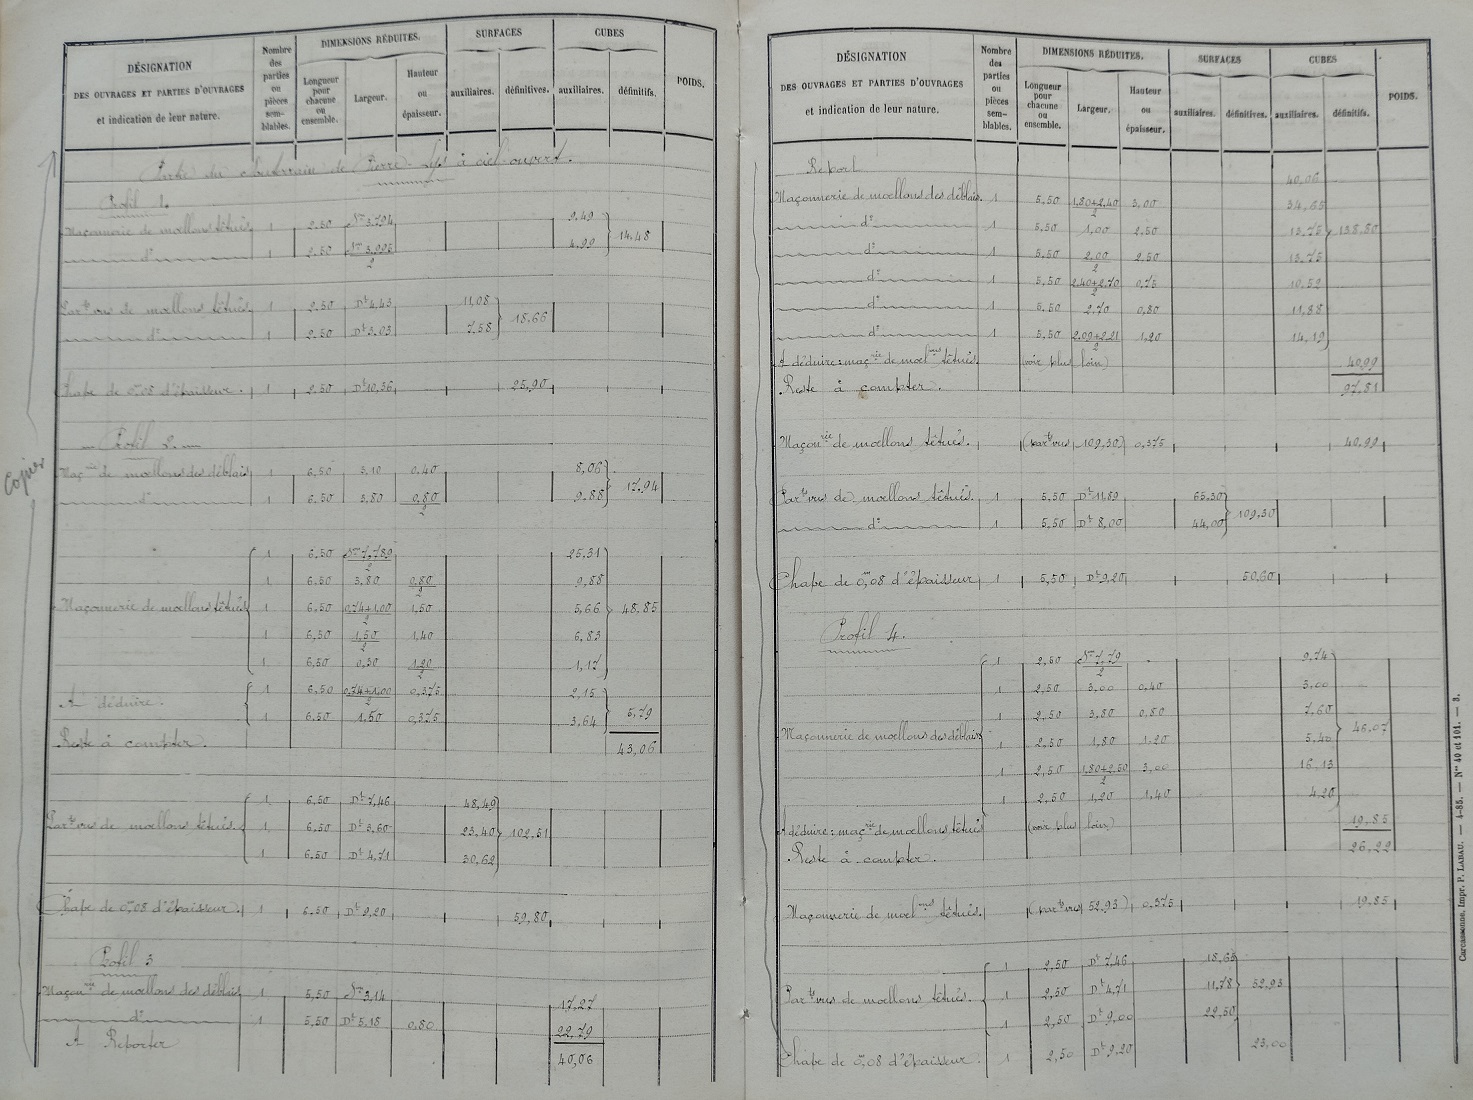 DÉSIGNATION
DES OUVRAGES ET PARTIES D'OUVRAGES
et indication de leur nature.
Nombre des parties ou pièces sem-blables.
DIMENSIONS RÉDUITES.
Longueur pour chacune ou ensemble.
Largeur.
Hauteur ou épaisseur.
SURFACES
auxiliaires.
définitives.
CUBES
auxiliaires.
définitifs.
POIDS.
Partie du souterrain de Pierre-Lys à ciel ouvert.
Profil 1.
Maçonnerie de moellons têtués 1 2.50 Nre 3.794 9,49
d° 1 2.50 Nre 3,995/2 4,99 } 14,48
Partts vus de moellons têtués 1 2.50 Dt 4,43 11,08
d° 1 2.50 Dt 3,03 7,58 } 18,66
Chape de 0m,08 d'épaisseur. 1 2,50 Dt 10,36 25,90
Profil 2.
Maçrie de moellons des déblais 1 6,50 3,10 0,40 8,06
d° 1 6,50 3,80 0,80/2 9,88 } 17,94
1 6,50 Nre 7,789/2 25,31
1 6,50 3,80 0,80/2 9,88
Maçonnerie de moellons têtués 1 6,50 0,74+1,00 1,50 5,66 } 48,85
1 6,50 1,50/2 1,40 6,83
1 6,50 0,30 1,20/2 1,17
A déduire. 1 6,50 0,74+1,00/2 0,375 2,15
1 6,50 1,50 0,375 3,64 } 5,79
Reste à compter. 43,06
Partts vus de moellons têtués. 1 6,50 Dt 7,46 48,49
1 6,50 Dt 3,60 23,40 } 102,51
1 6,50 Dt 4,71 30,62
Chape de 0m,08 d'épaisseur. 1 6,50 Dt 9,20 59,80
Profil 3
Maçonrie de moellons des déblais 1 5,50 Nre 3,14 17,27
d° 1 5,50 Dt 5,18 0,80 22,79
A Reporter 40,06
Copier
DÉSIGNATION
DES OUVRAGES ET PARTIES D'OUVRAGES
et indication de leur nature.
Nombre des parties ou pièces sem-blables.
DIMENSIONS RÉDUITES.
Longueur pour chacune ou ensemble.
Largeur.
Hauteur ou épaisseur.
SURFACES
auxiliaires.
définitives.
CUBES
auxiliaires.
définitifs.
POIDS.
Report 40,06
Maçonnerie de moellons des déblais. 1 5,50 1,80+2,40/2 3,00 34,65
d° 1 5,50 1,00 2,50 13,75 } 138,80
d° 1 5,50 2,00/2 2,50 13,75
d° 1 5,50 2,40+2,70/2 0,75 10,52
d° 1 5,50 2,70 0,80 11,88
d° 1 5,50 2,09+2,21/2 1,20 14,19
A déduire: maçrie de moelons têtués. (voir plus loin) 40,99
Reste à compter. 97,81
Maçonrie de moellons têtués. (partts vus 109,30) 0,375 40,99
Partts vus de moellons têtués. 1 5,50 Dt 11,89 65,30
d° 1 5,50 Dt 8,00 44,00 } 109,30
Chape de 0m,08 d'épaisseur 1 5,50 Dt 9,20 50,60
Profil 4.
1 2,50 Nre 7,79/2 9,74
1 2,50 3,00 0,40 3,00
1 2,50 3,80 0,80 7,60
Maçonnerie de moellons des déblais 1 2,50 1,80 1,20 5,40 } 46,07
1 2,50 1,80+2,50/2 3,00 16,13
1 2,50 1,20 1,40 4,20
A déduire: maçrie de moellons têtués (voir plus loin) 19,85
Reste à compter. 26,22
Maçonnerie de moelons têtués. (partts vus 52,93) 0,375 19,85
1 2,50 Dt 7,46 18,65
Partts vus de moellons têtués. 1 2,50 Dt 4,71 11,78 } 52,93
1 2,50 Dt 9,00 22,50
Chape de 0m,08 d'épaisseur. 1 2,50 Dt 9,20 23,00
Carcassonne. Impr. P. LABAU. — 4-85. — Nos 40 et 101. — 3.